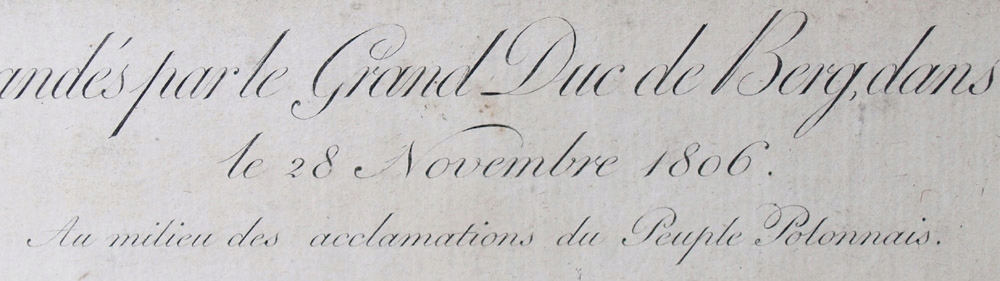 andés par le Grand Duc de Berg, dans
le 28 Novembre 1806.
Au milieu des acclamations du Peuple Polonnais.